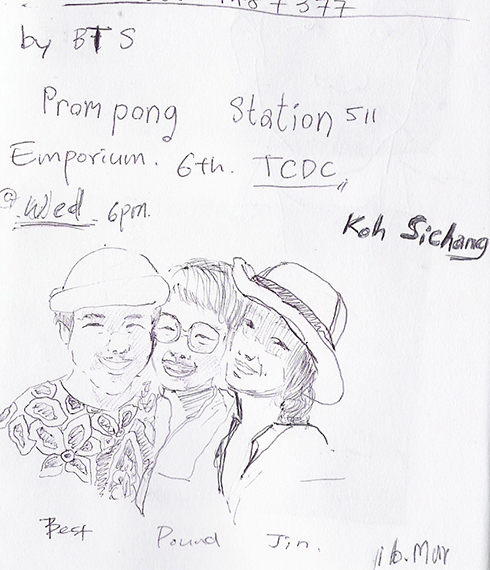 by BTS
Prom pong Station 511
Emporium. 6th. TCDC,,
@ Wed. 6pm.
Koh Sichang
Best Pound Jin.
16. Mar